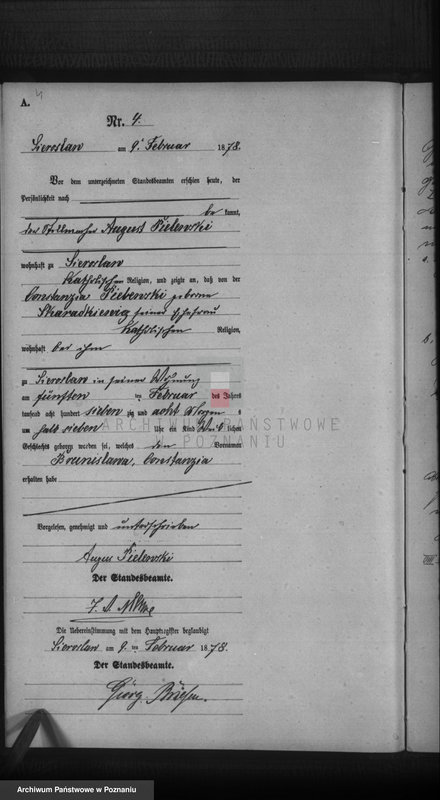 A. 4
Nr. 4.
Sieroslaw am 9t Februar 1878.
Vor dem unterzeichneten Standesbeamten erschien heute, der
Persönlichkeit nach
be kannt,
der Stellmacher August Pielewski
wohnhaft zu Sieroslaw
katholischen Religion, und zeigte an, daß von der
Constanzia geborene
seiner Ehefrau
katholischen Religion,
wohnhaft bei ihm
zu Sieroslaw in seiner Wohnung
am fünften ten Februar des Jahres
tausend acht hundert sieben zig und acht Morgens
um halb sieben Uhr ein Kind Weiblichen
Geschlechts geboren worden sei, welches den Vornamen
Bronislawa, Constanzia
erhalten habe
Vorgelesen, genehmigt und unterschrieben
August Pielewski
Der Standesbeamte.
Die Uebereinstimmung mit dem Hauptregister beglaubigt
Sieroslaw am 9. ten Februar 1878.
Der Standesbeamte.
Georg
ARCHIWUM PAŃSTWOWE
W POZNANIU
Archiwum Państwowe w Poznaniu